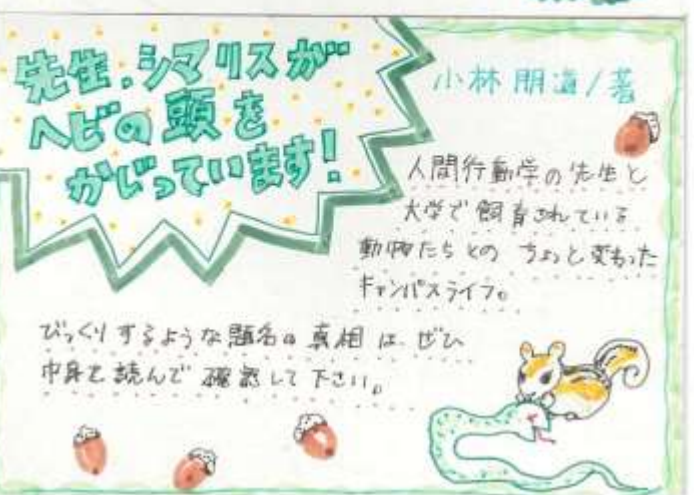 先生、シマリスが
ヘビの頭を
かじっています!
小林朋道/著
人間行動学の先生と
大学で飼育されている
動物たちとの ちょっと変わった
キャンパスライフ。
びっくりするような題名の真相は、ぜひ
中身を読んで確認して下さい。